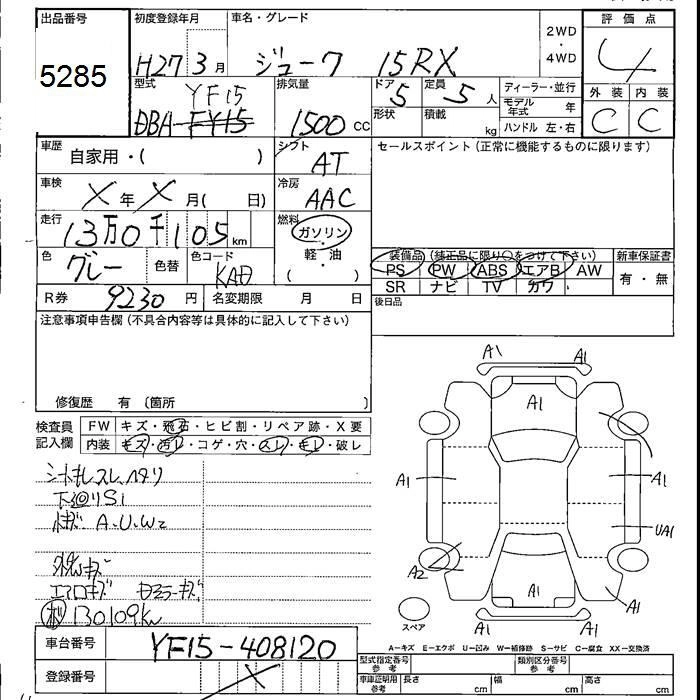 出品番号
5285
初度登録年月
H27 3月
車名・グレード
ジューク 15RX
2WD
・
4WD
評価点
4
外装 内装
C C
型式
YF15
DBA-FY15
排気量
1500 CC
ドア
5
定員
5 人
形状
積載
kg
ディーラー・並行
モデル年式 年
ハンドル 左・右
車歴
自家用・( )
シフト
AT
セールスポイント(正常に機能するものに限ります)
車検
X年 X月( 日)
冷房
AAC
走行
13万0千105km
燃料
ガソリン
・
軽油
( )
色
グレー
色替
色コード
KAD
装備品(純正品に限り○をつけて下さい)
PS PW ABS エアB AW
SR ナビ TV カワ
新車保証書
有・無
後日品
R券 9230円
名変期限 月 日
注意事項申告欄(不具合内容等は具体的に記入して下さい)
修復歴 有 〔箇所 〕
検査員
記入欄
FW キズ・飛石・ヒビ割・リペア跡・X要
内装 キズ・汚レ・コゲ・穴・スレ・キレ・破レ
シートキレ、スレ、ヘタリ
下廻りS1
A.U.W2
エアロキズ
130109km
A1 A1
A1
A1 A1
UA1
A2
A1
A1
スペア
車台番号 YF15-408120
登録番号 X
A−キズ E−エクボ U−凹み W−補修跡 S−サビ C−腐食 XX−交換済
型式指定番号
参考
類別区分番号
参考
車庫証明用
参考
長さ cm 幅 cm 高さ cm